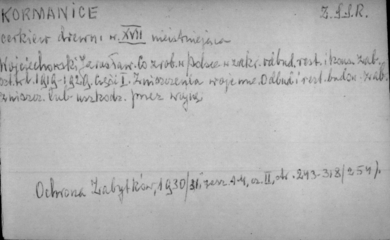 KORMANICE Z.S.S.R.
cerkiew drewn. w. XVII nieistniejąca
Wojciechowski Jarosław. Co zrob. w Polsce w zakr. odbud. rest. i konz. zab.
1919-1929. Część I. Zniszczenia wojenne. Odbud. i rest. budow. zab.
zniszcz. lub uszkodz. przez wojnę
Ochrona Zabytków, 1930/31, zesz. 1-4, cz. II, str. 243-318 (254).